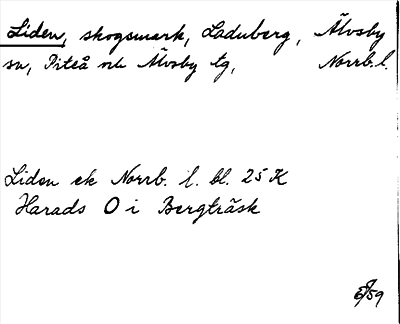 Liden, skogsmark, Laduberg, Älvsby
sn, Piteå o. Älvsby tg, Norrb. l.
Liden ek Norrb. l. bl. 25 K
Harads O i Bergträsk
/59